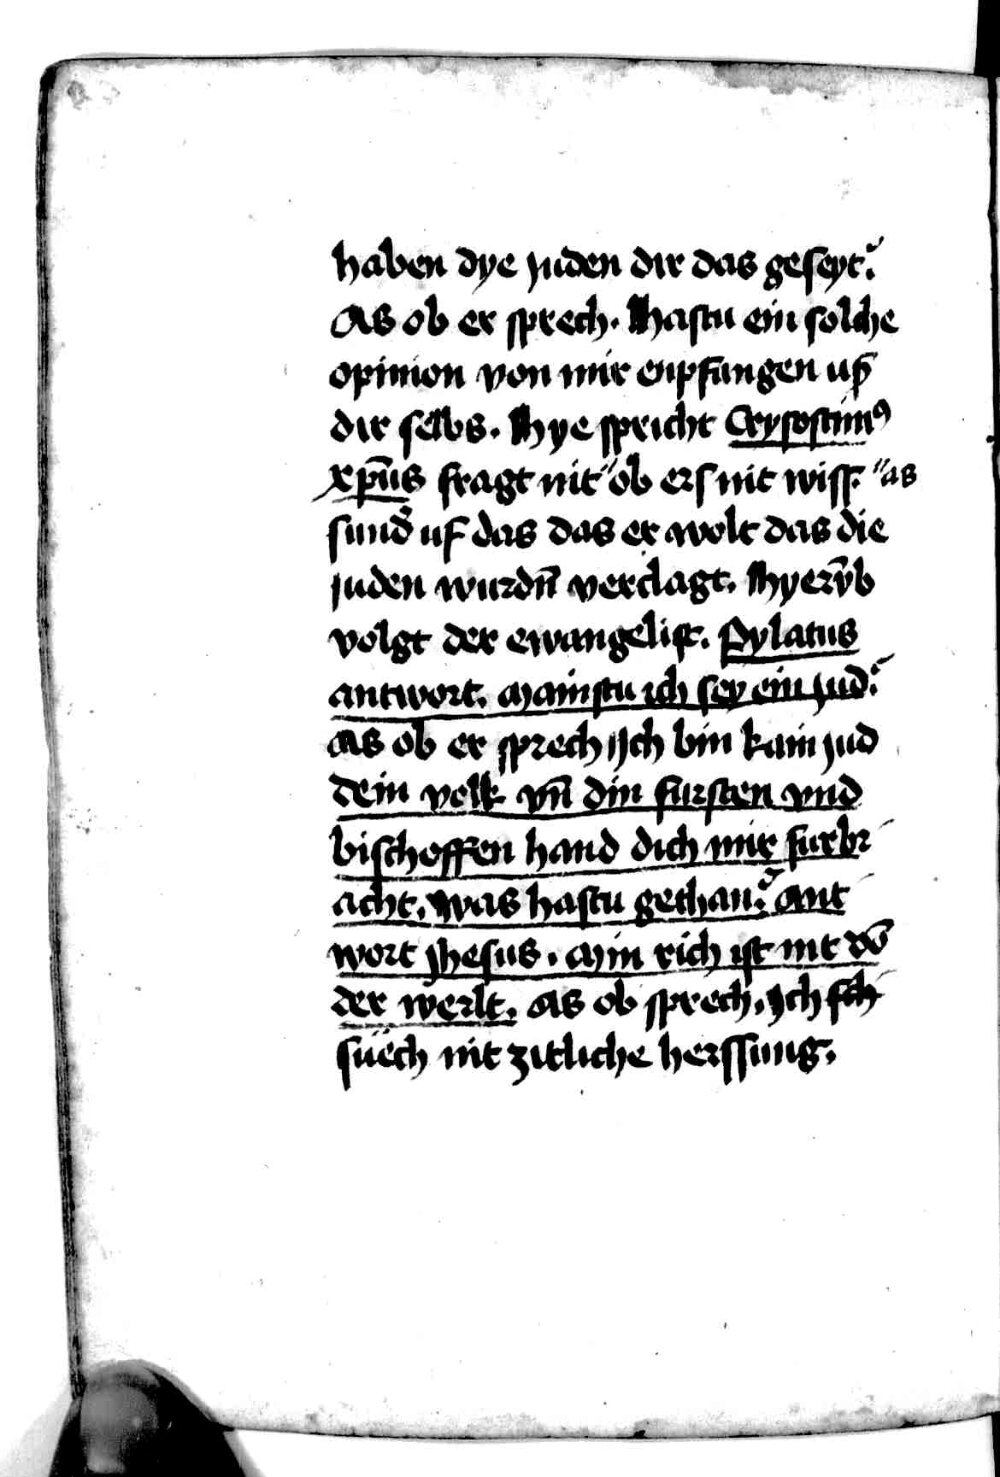 haben dye juden dir das geseyt?
As ob er sprech. Hastu ein solche
opinion von mir enpfangen uß
dir selbs. Hye spricht Crysostimꝰ
xp̄us fragt nit "ob ers nit wiss. "as
sund̄ uf das das er wolt das die
juden wurdn̄ verclagt. Hyerv̄b
volgt der ewangelist. Pylatus
antwort. Mainstu ich sey ein jud?
As ob er sprech Ich bin kain jud
dein volk vn̄ din fursten vnd
bischoffen hand dich mir furbr
acht. Was hastu gethan? Ant
wort Jhesus. Min rich ist nit vō
der werlt. As ob sprech. Ich sch
suech nit zitliche herssung.